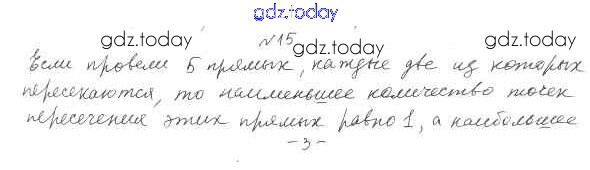 gdz.today
gdz.today №15 gdz.today gdz.today
Если провели 5 прямых, каждые две из которых
пересекаются, то наименьшее количество точек
пересечения этих прямых равно 1, а наибольшее
- 3 -